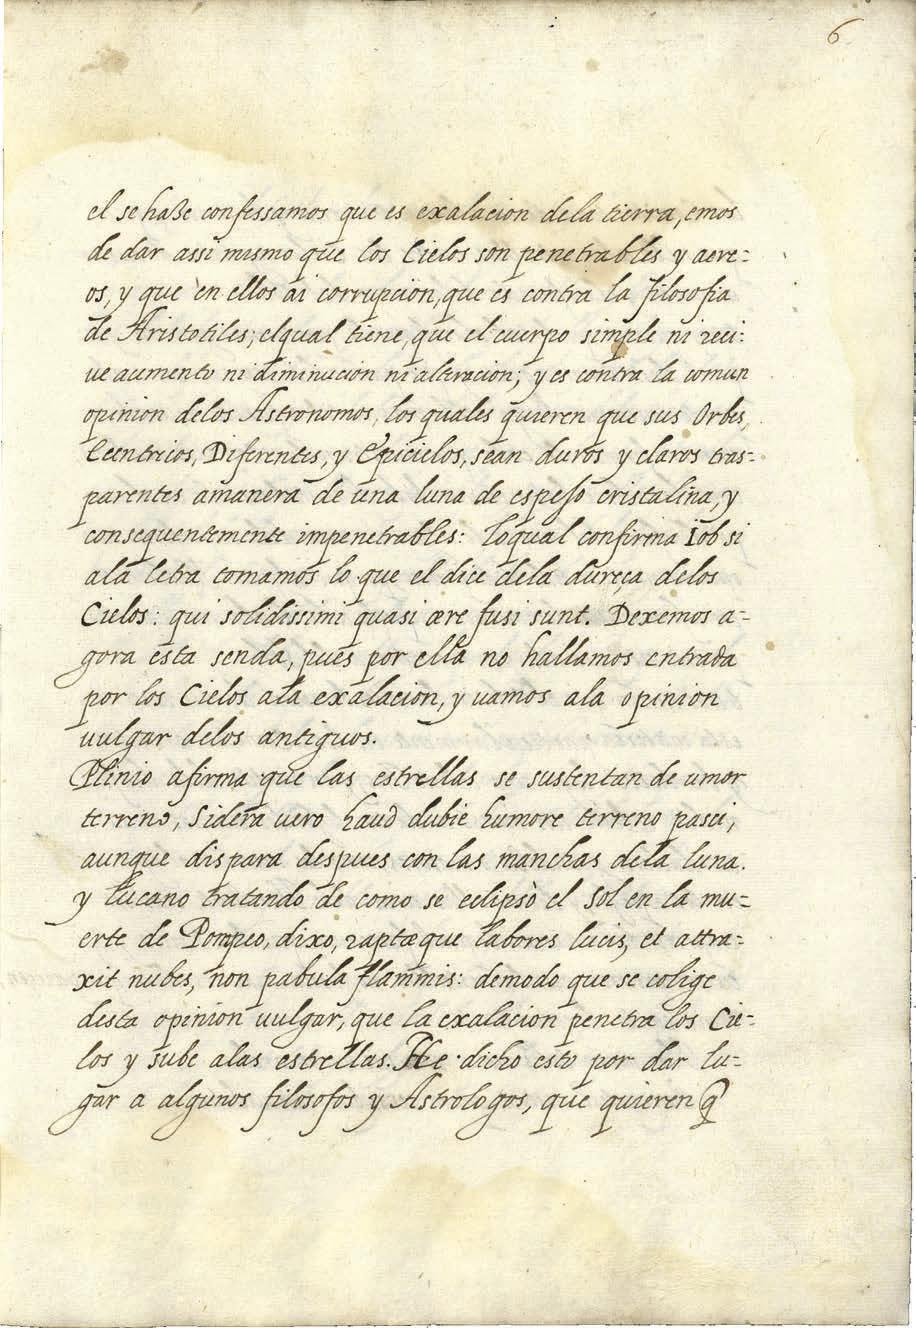 6
el se haße confessamos que es exalacion dela tierra, emos
de dar assi mismo que los Cielos son penetrables y aere-
os, y que en ellos ai corrupcion, que es contra la filosofia
de Aristotiles; elqual tiene, que el cuerpo simple ni reci:
ue aumento ni diminucion ni alteracion; y es contra la comun
opinion delos Astronomos, los quales quieren que sus Orbes,
Ecentricos, Diferentes, y Epicielos, sean duros y claros tras-
parentes amanera de una luna de espeso cristalina, y
consequentemente impenetrables: loqual confirma Iob si
ala letra tomamos lo que el dice dela dureça delos
Cielos: qui solidissimi quasi ære fusi sunt. Dexemos a-
gora esta senda, pues por ella no hallamos entrada
por los Cielos ala exalacion, y uamos ala opinion
uulgar delos antiguos.
Plinio afirma que las estrellas se sustentan de umor
terreno, Sidera uero haud dubie humore terreno pasci,
aunque dispara despues con las manchas dela luna.
y Lucano tratando de como se eclipsò el Sol en la mu-
erte de Pompeo, dixo, raptæque labores lucis, et attra-
xit nubes, non pabula flammis: demodo que se colige
desta opinion uulgar, que la exalacion penetra los Cie-
los y sube alas estrellas. He dicho esto por dar lu-
gar a algunos filosofos y Astrologos, que quieren q